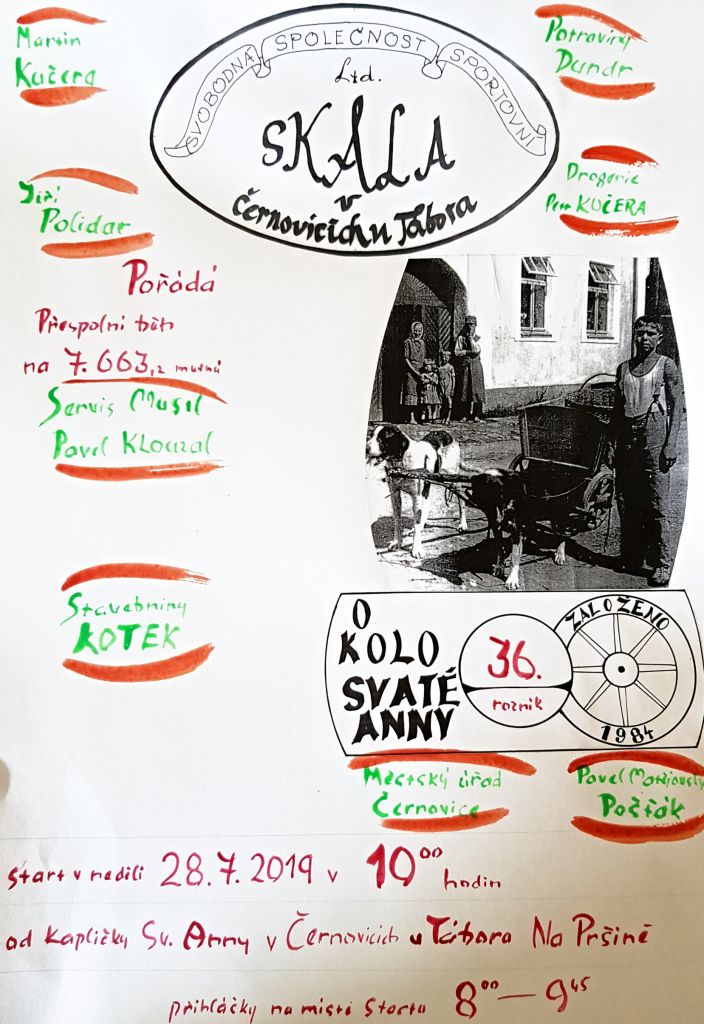 Martin
Kučera
SVOBODNÁ SPOLEČNOST SPORTOVNÍ
Ltd.
SKALA
v
Černovicích u Tábora
Potraviny
Dundr
Jiří
Polidar
Drogerie
Petr KUČERA
Pořádá
Přespolní běh
na 7.663,2 metrů
Servis Musil
Pavel KLOUZAL
Stavebniny
KOTEK
O
KOLO
SVATÉ
ANNY
36.
ročník
ZALOŽENO
1984
Městský úřad
Černovice
Pavel Matějovský
Pošťák
Start v neděli 28.7.2019 v 10⁰⁰ hodin
od Kapličky Sv. Anny v Černovicích u Tábora Na Pršině
přihlášky na místě startu 8⁰⁰ — 9⁴⁵